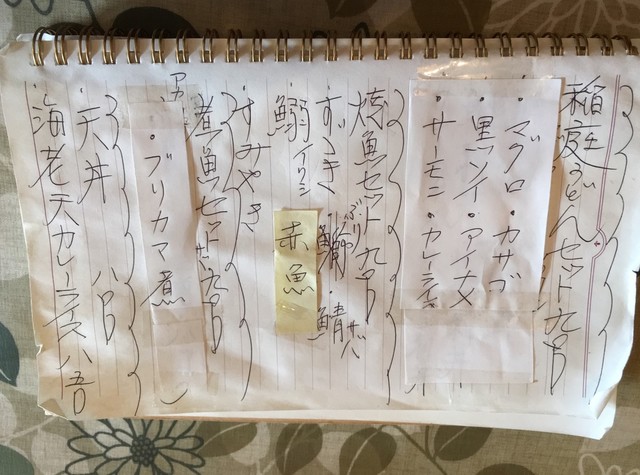 稲庭うどんセット 九百
・マグロ・カサゴ
・黒ソイ・アイナメ
・サーモン・カレーライス
焼魚セット 九百
すゞき 鰤 ぶり・鯖 サバ
鰯 イワシ
赤魚
すみやき
煮魚セット 九百
・ブリカマ煮
・天丼 八百
・海老天カレーライス